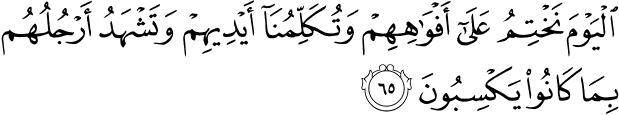 ٱلْيَوْمَ نَخْتِمُ عَلَىٰٓ أَفْوَٰهِهِمْ وَتُكَلِّمُنَآ أَيْدِيهِمْ وَتَشْهَدُ أَرْجُلُهُم
بِمَا كَانُوا۟ يَكْسِبُونَ ٦٥